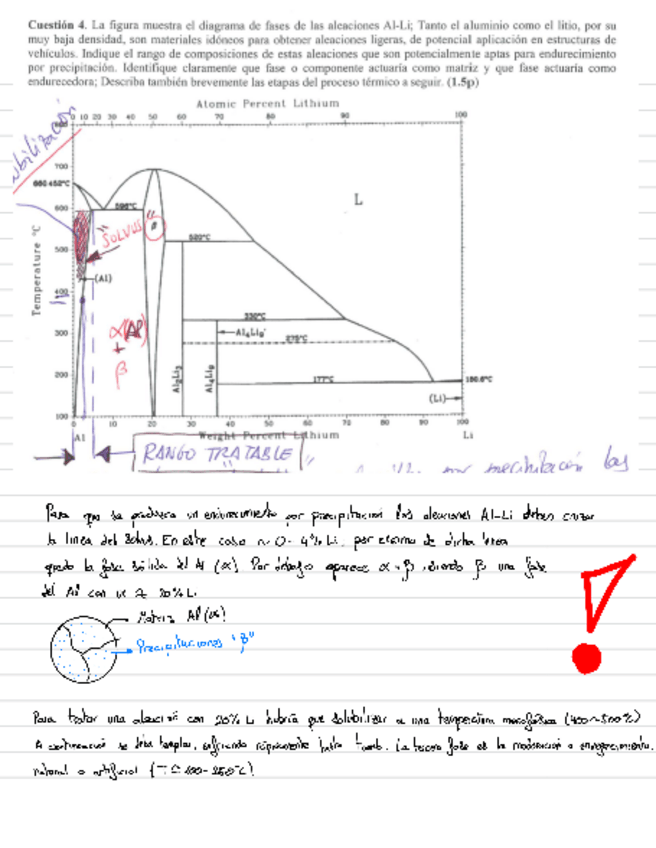 Cuestión 4. La figura muestra el diagrama de fases de las aleaciones Al-Li; Tanto el aluminio como el litio, por su
muy baja densidad, son materiales idóneos para obtener aleaciones ligeras, de potencial aplicación en estructuras de
vehículos. Indique el rango de composiciones de estas aleaciones que son potencialmente aptas para endurecimiento
por precipitación. Identifique claramente que fase o componente actuaría como matriz y que fase actuaría como
endurecedora; Describa también brevemente las etapas del proceso térmico a seguir. (1.5p)
Atomic Percent Lithium
0 10 20 30 40 50 60 70 80 90 100
700
660.452°C
L
600
596°C
"SOLVUS"
β
520°C
500
Temperature °C
(Al)
400
α(Al)
+
β
330°C
300
Al₄Li₉'
275°C
200
Al₂Li₃
Al₄Li₉
177°C
180.6°C
(Li)
100
0 10 20 30 40 50 60 70 80 90 100
Al
Weight Percent Lithium
Li
RANGO TRATABLE
precipitación las
Para que se produzca un endurecimiento por precipitación las aleaciones Al-Li deben cruzar
la línea del Solvus. En este caso ~ 0- 4% Li. por encima de dicha línea
la fase sólida del Al (α). Por debajo aparece α + β, siendo β una fase
del Al con 20% Li
Matriz Al(α)
Precipitaciones "β"
Para tratar una aleación con 20% Li habría que solubilizar a una temperatura monofásica (400~500°C)
A continuación se debe templar, enfriando rápidamente. La tercera fase es la maduración o envejecimiento,
natural o artificial